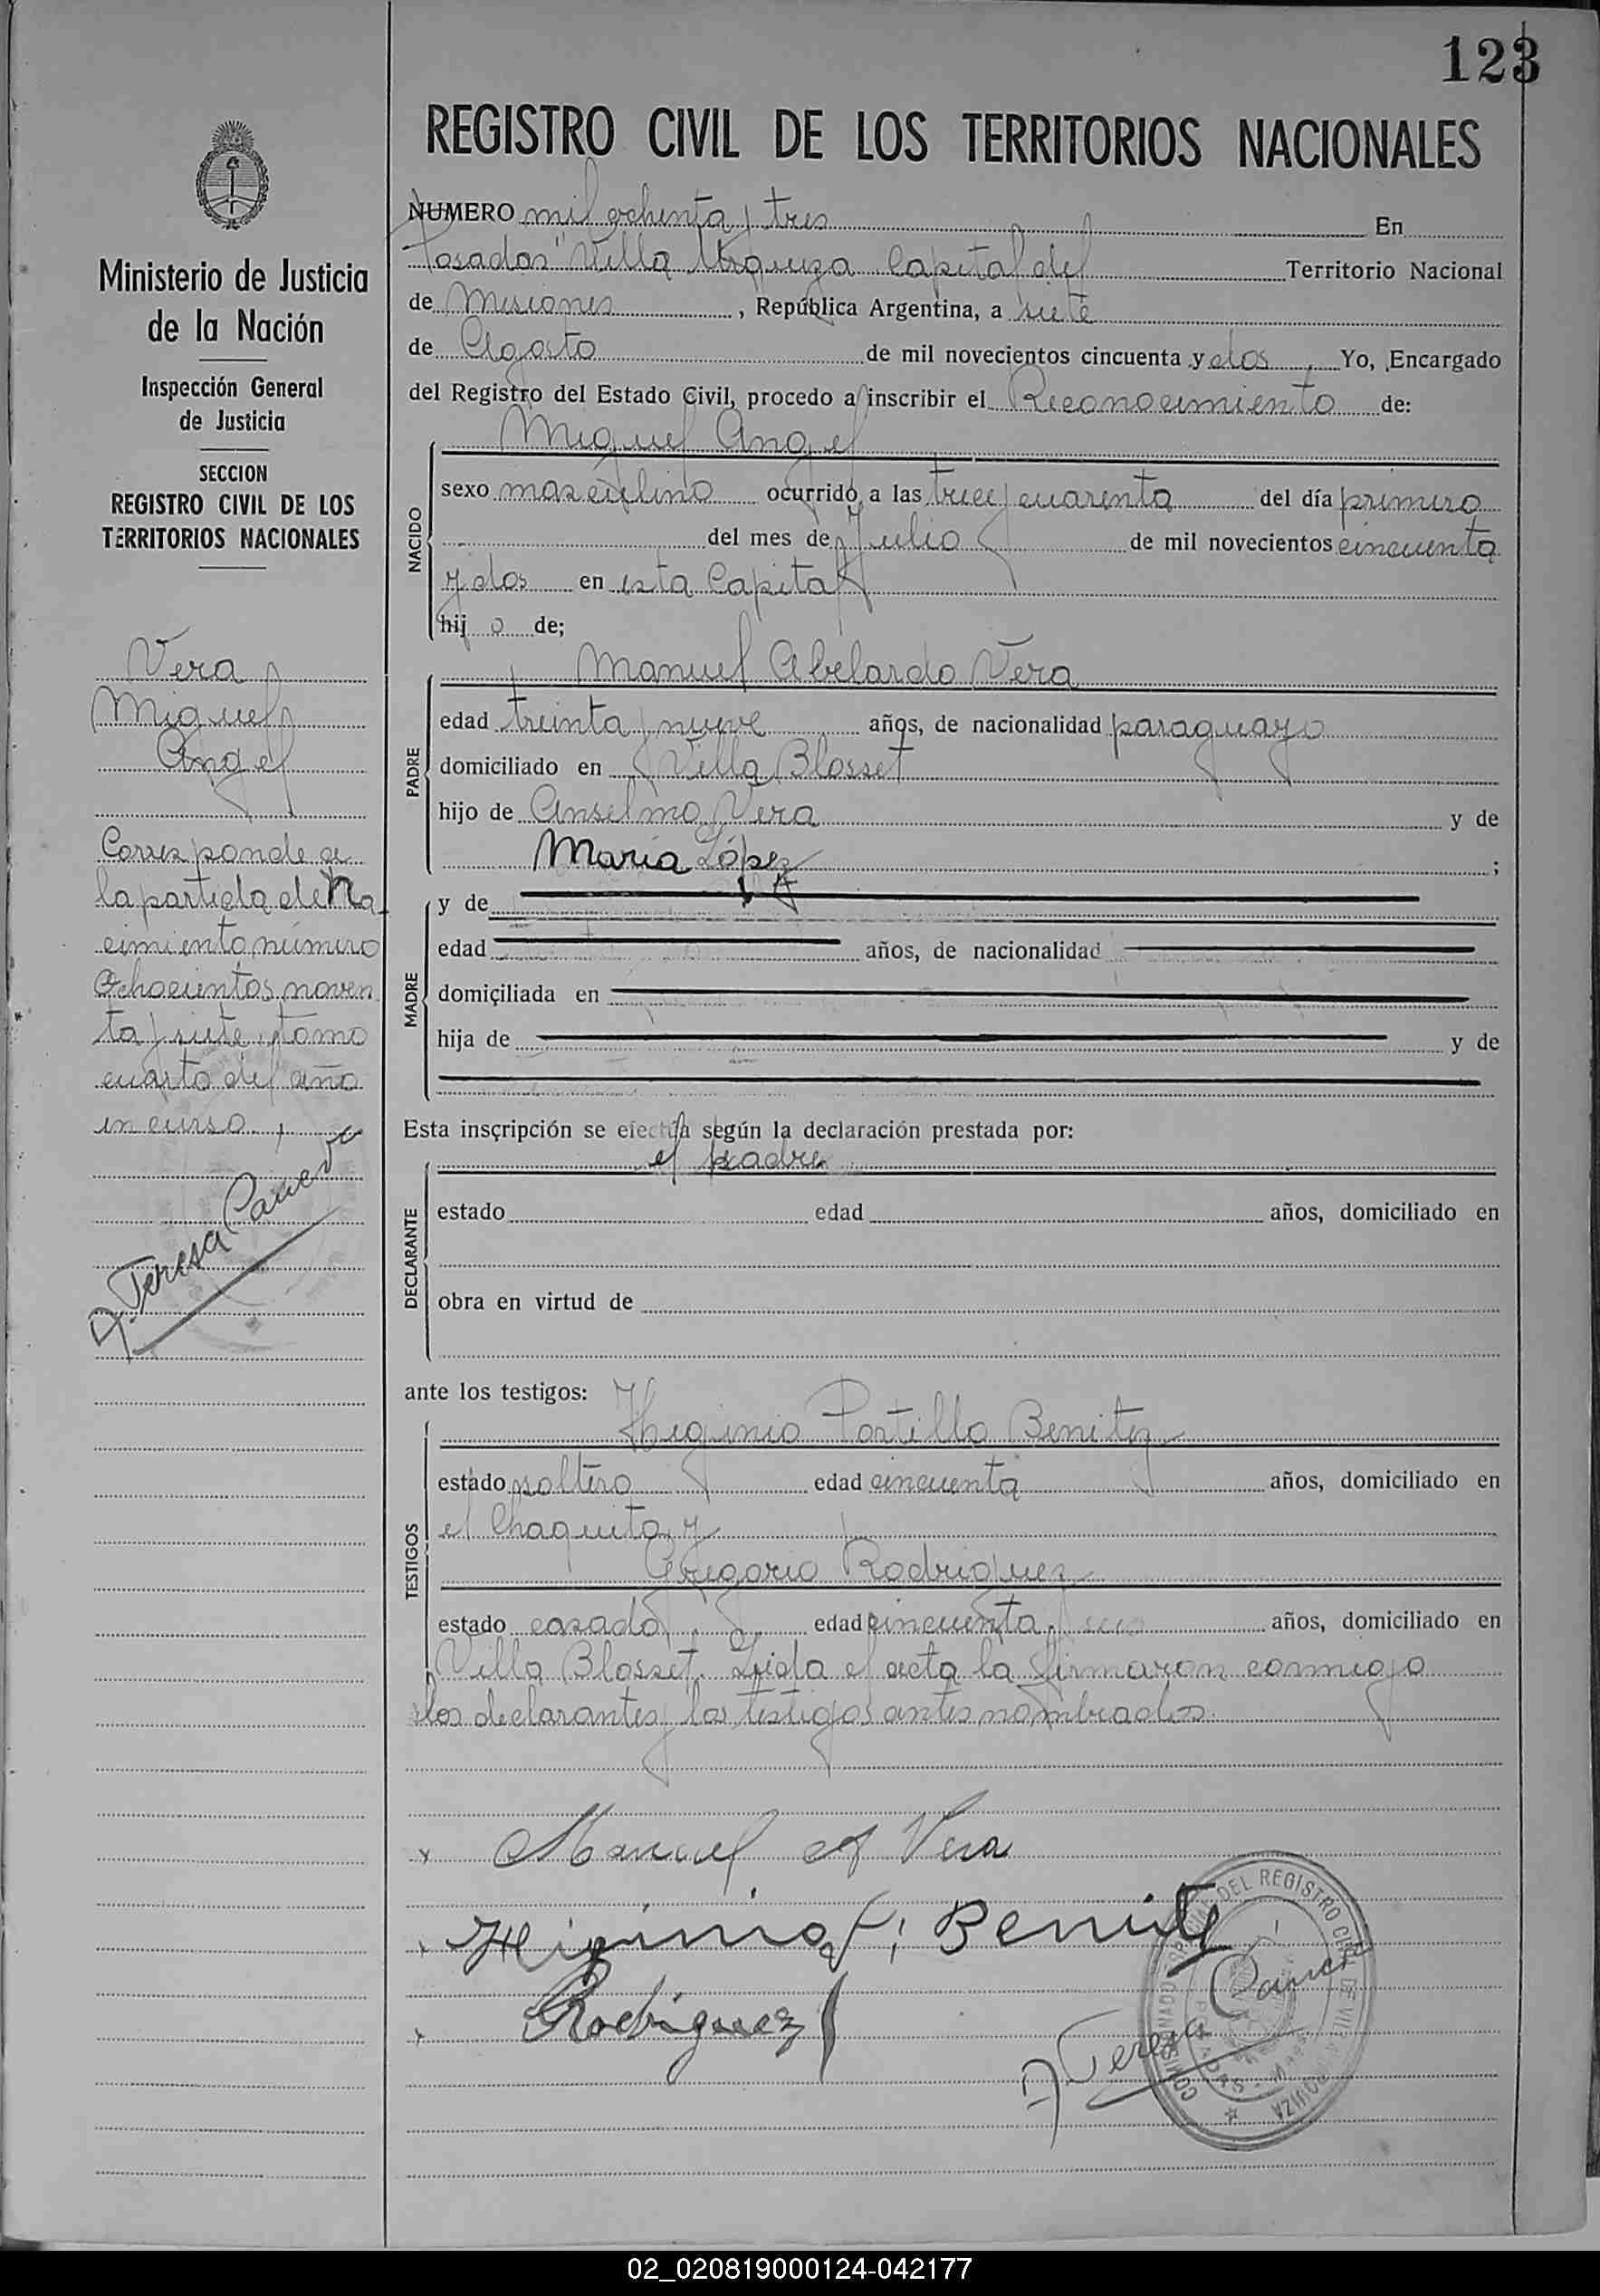 123
REGISTRO CIVIL DE LOS TERRITORIOS NACIONALES
Ministerio de Justicia
de la Nación
Inspección General
de Justicia
SECCION
REGISTRO CIVIL DE LOS
TERRITORIOS NACIONALES
Vera
Miguel
Angel
Corresponde a
la partida de na
cimiento número
Ochocientos noven
ta y siete, tomo
cuarto del año
en curso.
Teresa
NUMERO mil ochenta y tres En
Posadas "Villa Urquiza Capital del Territorio Nacional
de Misiones, República Argentina, a siete
de Agosto de mil novecientos cincuenta y dos, Yo, Encargado
del Registro del Estado Civil, procedo a inscribir el Reconocimiento de:
NACIDO
Miguel Angel
sexo masculino ocurrido a las trece y cuarenta del día primero
del mes de Julio de mil novecientos cincuenta
y dos en esta Capital
hij o de;
PADRE
Manuel Abelardo Vera
edad treinta y nueve años, de nacionalidad paraguayo
domiciliado en Villa Blosset
hijo de Anselmo Vera y de
María López ;
MADRE
y de
edad años, de nacionalidad
domiciliada en
hija de y de
Esta inscripción se efectúa según la declaración prestada por:
DECLARANTE
el padre
estado edad años, domiciliado en
obra en virtud de
ante los testigos:
TESTIGOS
Higinio Portillo Benitez
estado soltero edad cincuenta años, domiciliado en
el Chaquito y
Gregorio Rodriguez
estado casado edad cincuenta y seis años, domiciliado en
Villa Blosset. Leida el acta la firmaron conmigo
los declarantes y los testigos antes nombrados.
Manuel A Vera
Higinio P. Benitez
Rodriguez
Teresa
DEL REGISTRO CIVIL DE VILLA URQUIZA
02_020819000124-042177